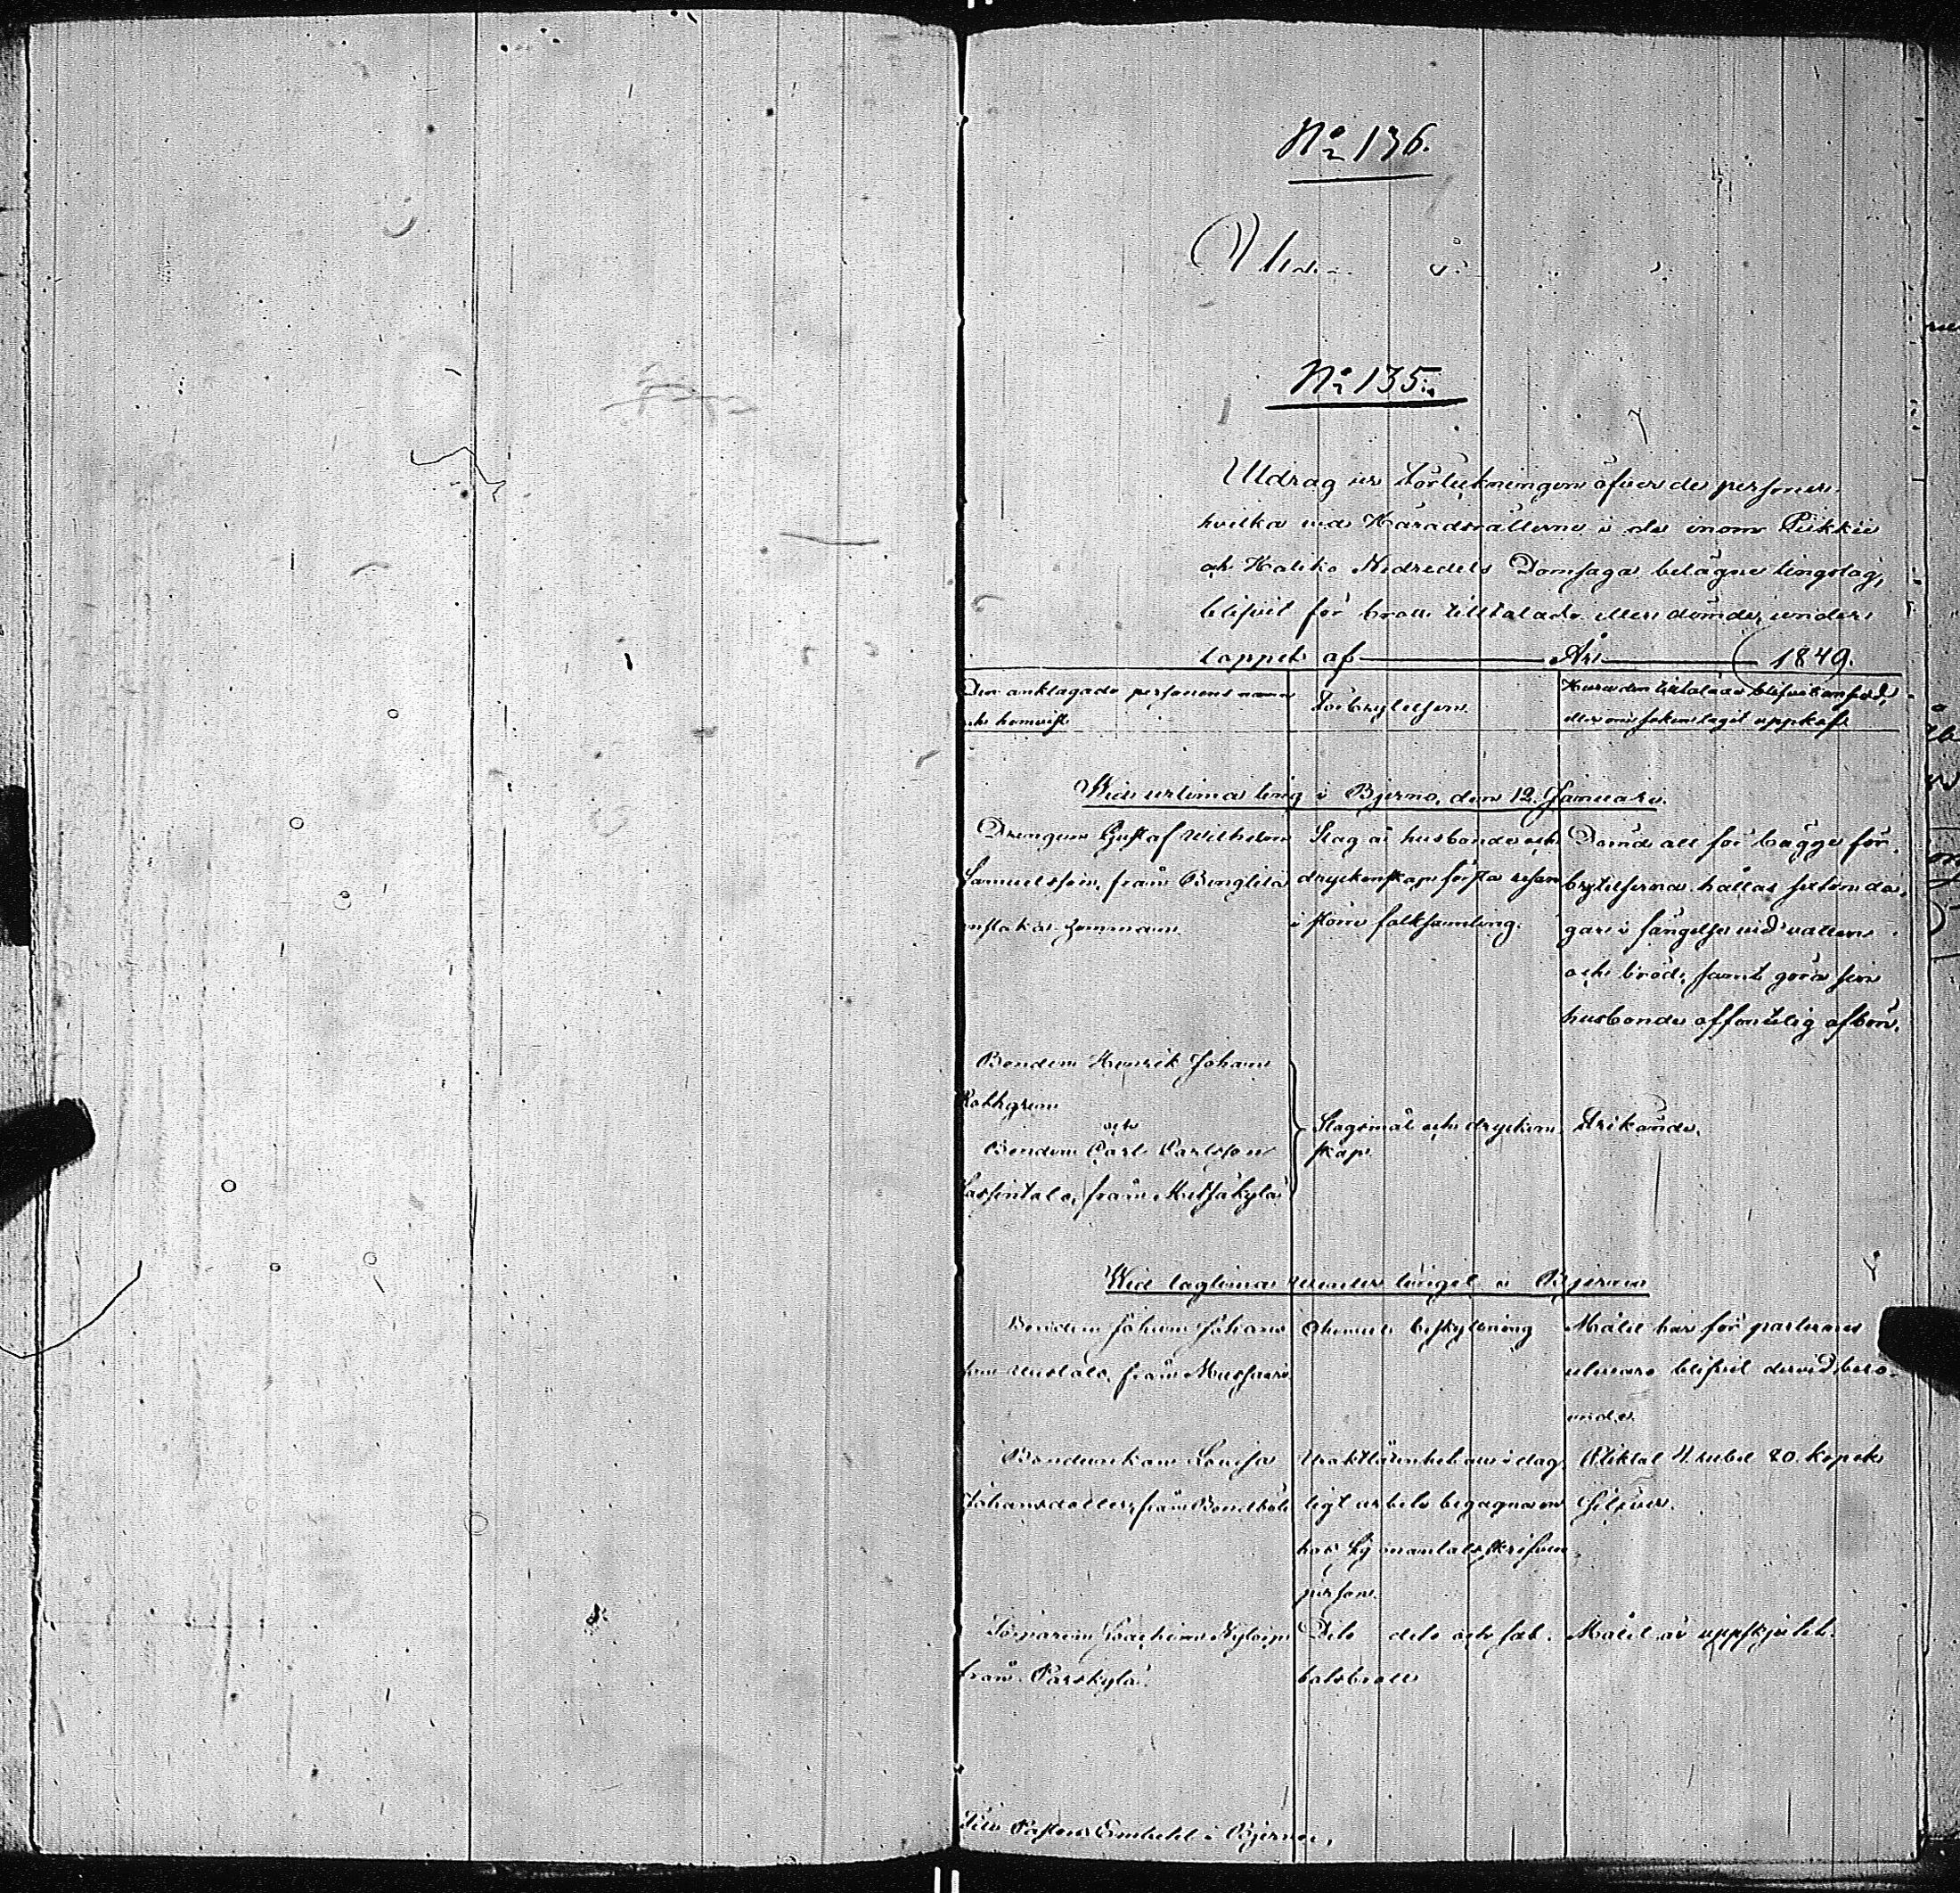 No 136.
No 135.
Utdrag ur Förteckningen öfver de personer,
hvilka vid Häradsrätterne i de inom Pikkis
och Haliko Nedredels Domsaga belägne tingslag,
blifvit för brott tilltalade eller dömde, under
loppet af År 1849.
Den anklagade personens namn
och hemvist.
Förbrytelsen.
Huru den tilltalade blifvit ansedd,
eller om saken tagit uppskof.
Wid urtima ting i Bjerno, den 12 Januari.
Drengen Gustaf Wilhelm
Samuelsson, från
hemman.
Slag å husbonde och
dryckenskap första resan
i större folksamling.
Dömd att för bägge för-
brytelserna hållas
gar i fängelse vid vatten
och bröd, samt göra sin
husbonde offentelig afbön.
Bonden Henrik Johan
och
Bonden Carl Carlsson
Lassintalo, från Metsäkylä
Slagsmål och drycken-
skap.
Frikände.
Wid lagtima tinget i Bjerno
Bonden Johan Johans-
son från
beskyllning
Målet har för parternes
uteviaro blifvit dervid bero-
ende.
Bondenkan Lovisa
Johansdotter, från
i dag-
ligt arbete begagnad en
hos sig mantalsskrifven
person.
Pliktat 4 rubel 80 kopek
Silfver.
Torparen Joachim
från Parskylä.
Dito dito och sab-
batsbrott
Målet är uppskjutet.
Till Pastors Embetet i Bjerno,